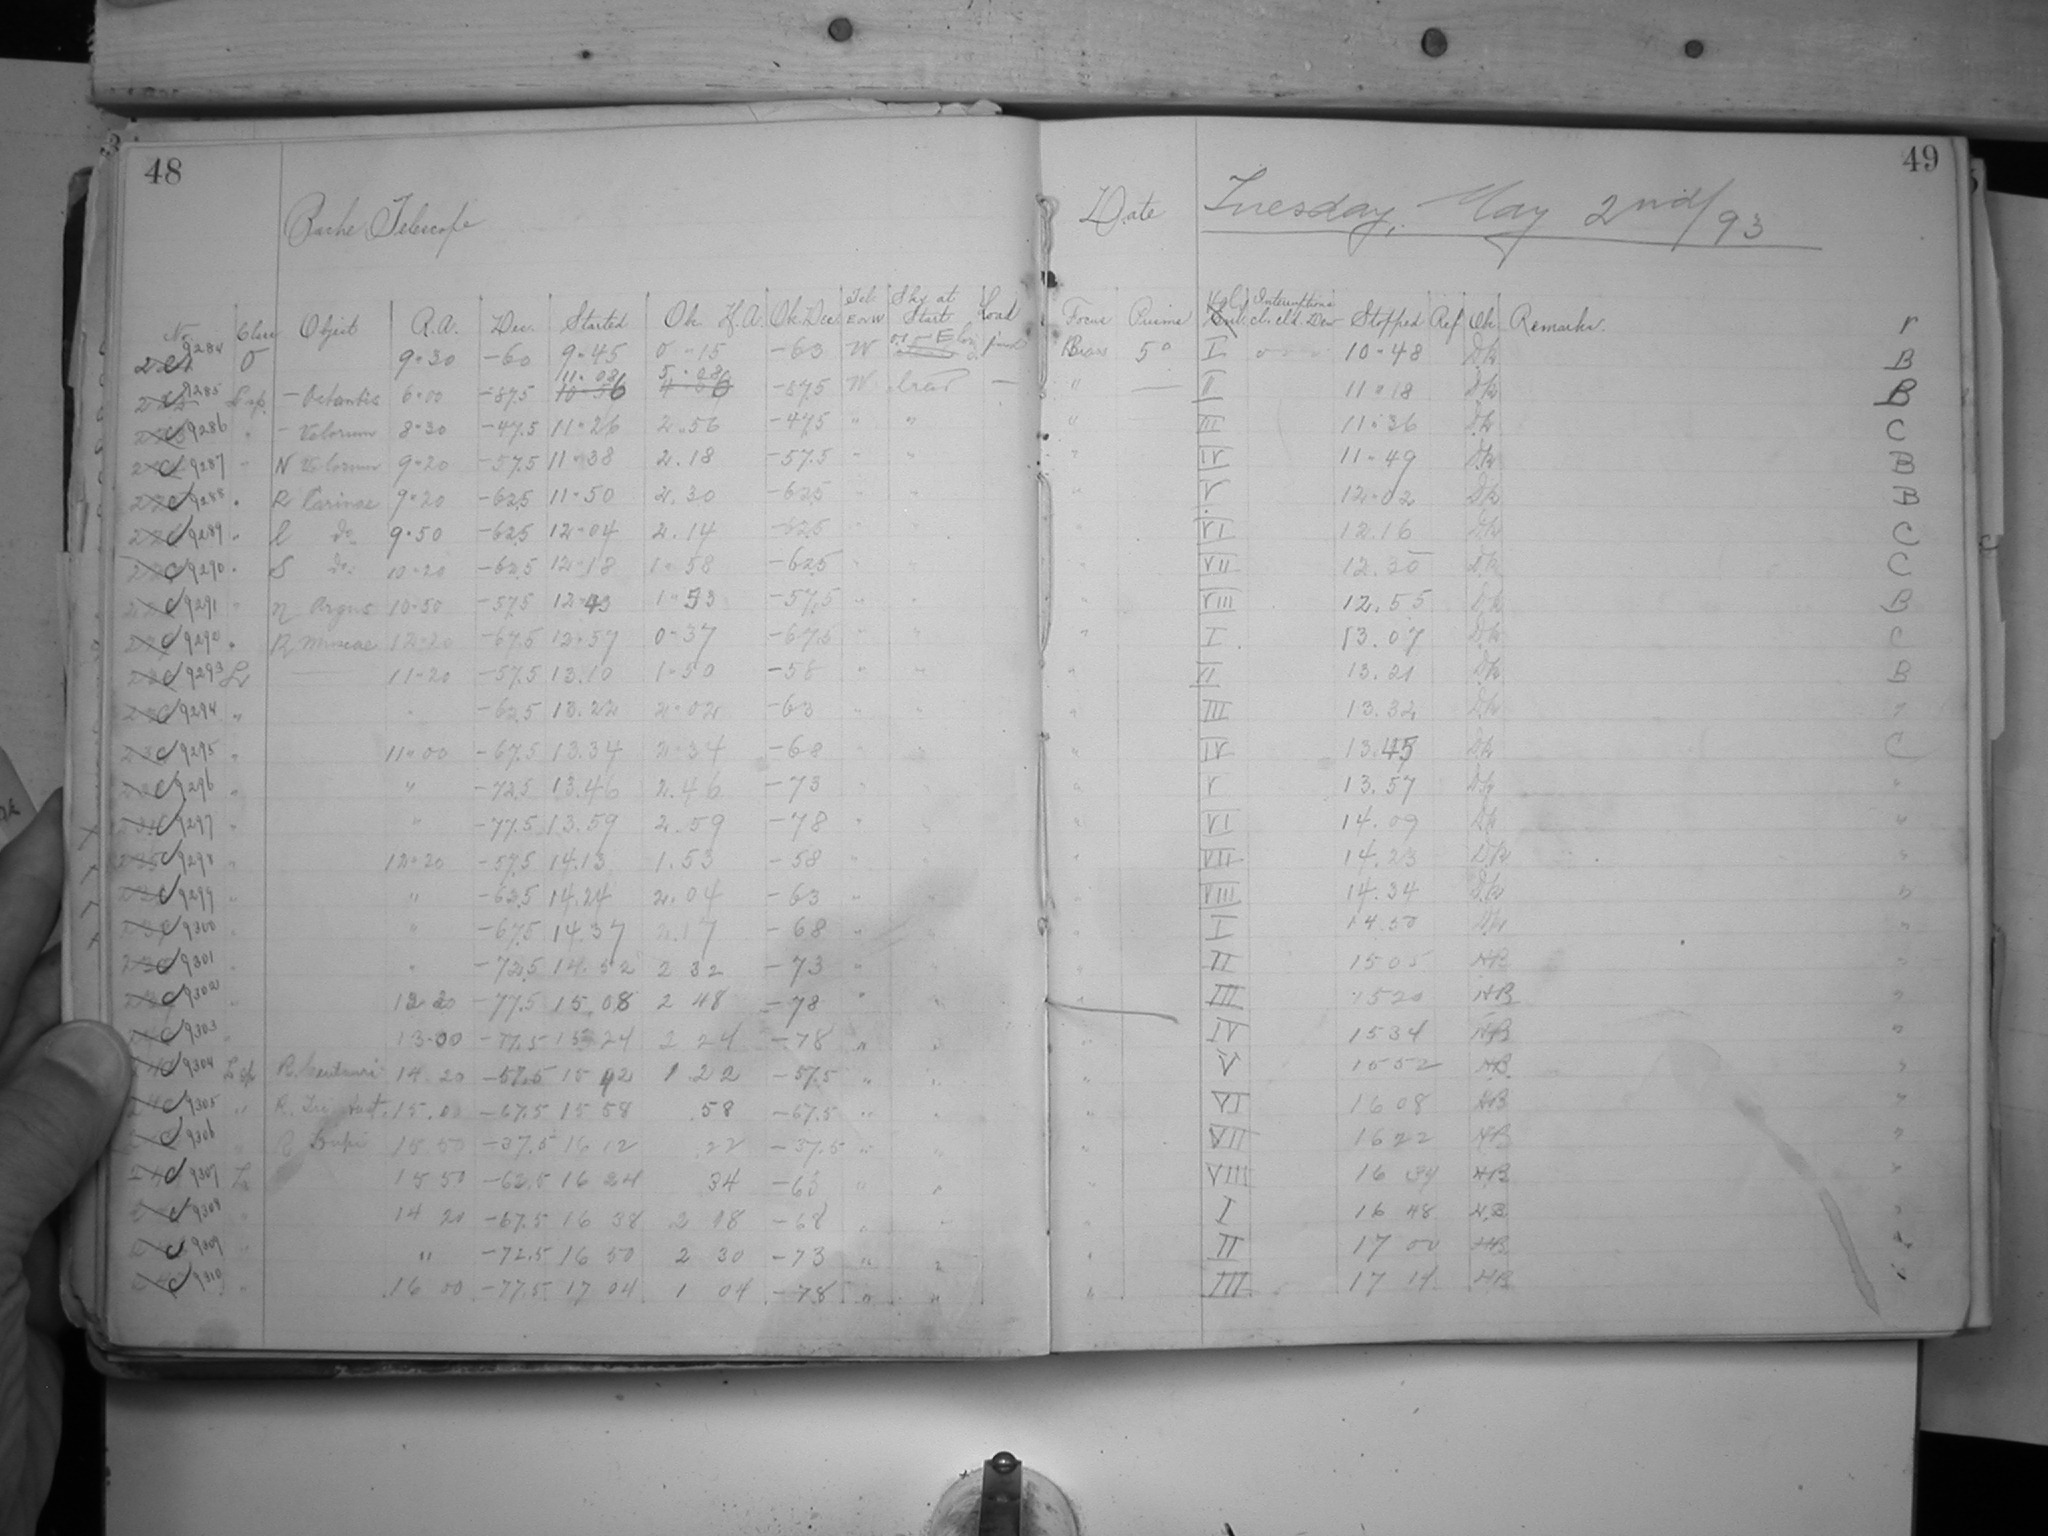 48
49
Bache Telescope Date Tuesday, May 2nd/93
No. Class Object R.A. Dec. Started Ok. H.A. Ok. Dec. Tel. E or W Sky at Start Load Focus Prisms Interruptions Stopped Ref Ok Remarks. r
9284 O 9·30 -60 9·45 0·15 -63 W 5° I 10·48 Dk B
9285 L sp. - Octantis 6·00 -87.5 11·08 5·08 -87.5 W clear — " — II 11·18 Dk B
9286 " - Velorum 8·30 -47.5 11·26 2.56 -47.5 " " " III 11·36 Dk C
9287 " N Velorum 9·20 -57.5 11·38 2.18 -57.5 " " " IV 11·49 Dk B
9288 " R Carinae 9·20 -62.5 11·50 2.30 -62.5 " " " V 12·02 Dk B
9289 " l do 9·50 -62.5 12·04 2.14 -62.5 " " " VI 12.16 Dk C
9290 " S do. 10·20 -62.5 12·18 1·58 -62.5 " " " VII 12.30 Dk C
9291 " η Argus 10·50 -57.5 12·43 1·53 -57.5 " " " VIII 12.55 Dk B
" R Muscae 12·20 -67.5 12·57 0·37 -67.5 " " " I 13.07 Dk C
9293 L — 11·20 -57.5 13.10 1·50 -58 " " " II 13.21 Dk B
9294 " " -62.5 13.22 2·02 -63 " " " III 13.32 Dk "
9295 " 11·00 -67.5 13.34 2·34 -68 " " " IV 13.45 Dk C
9296 " " -72.5 13.46 2.46 -73 " " " V 13.57 Dk "
9297 " " -77.5 13.59 2.59 -78 " " " VI 14.09 Dk "
9298 " 12·20 -57.5 14.13 1.53 -58 " " " VII 14.23 Dk "
9299 " " -62.5 14.24 2.04 -63 " " " VIII 14.34 Dk "
9300 " " -67.5 14.37 2.17 -68 " " " I 14 50 "
9301 " " -72.5 14.52 2 32 -73 " " " II 15 05 HB "
9302 " -77.5 15 08 2 48 -78 " " " III 15 20 HB "
9303 " 13·00 -77.5 15 24 2 24 -78 " " " IV 15 34 HB "
9304 L sp R. Centauri 14 20 -57.5 15 42 1 22 -57.5 " " " V 15 52 HB "
9305 " R. Tri Aust. 15.00 -67.5 15 58 .58 -67.5 " " " VI 16 08 HB "
9306 " R Lupi 15 50 -37.5 16 12 .22 -37.5 " " " VII 16 22 HB "
9307 L 15 50 -62.5 16 24 34 -63 " " " VIII 16 34 HB "
9308 " 14 20 -67.5 16 38 2 18 -68 " " " I 16 48 H.B "
9309 " " -72.5 16 50 2 30 -73 " " " II 17 00 HB "
9310 " 16 00 -77.5 17 04 1 04 -78 " " " III 17 14 HB "